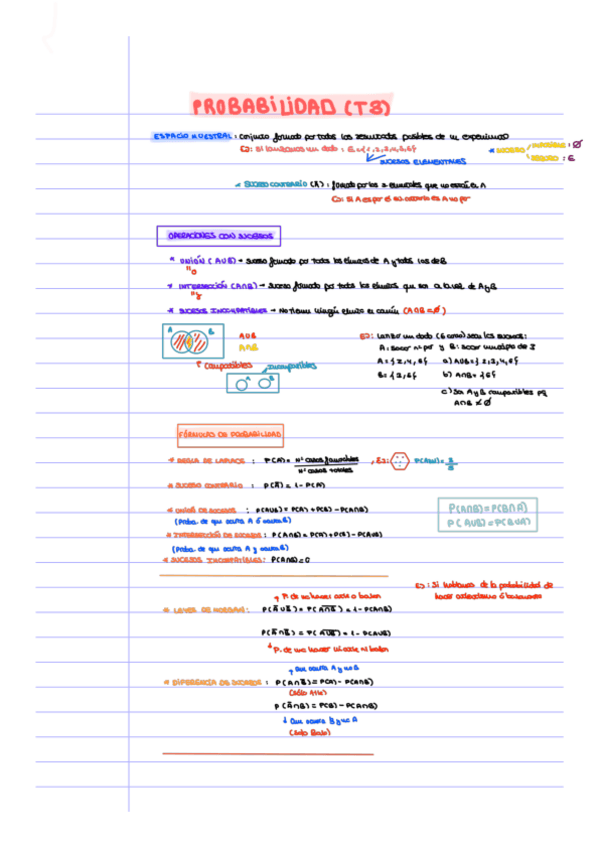 PROBABILIDAD (T8)
ESPACIO MUESTRAL: Conjunto formado por todos los resultados posibles de un experimento
EJ: Si lanzamos un dado: E={1,2,3,4,5,6}
SUCESOS ELEMENTALES
SUCESO IMPOSIBLE: Ø
SEGURO: E
SUCESO CONTRARIO (Ā): formado por los elementales que no están en A
EJ: Si A es par el su contrario es A no par
OPERACIONES CON SUCESOS
* UNIÓN (AUB) → suceso formado por todos los elementos de A y todos los de B
"o"
* INTERSECCIÓN (A∩B) → suceso formado por todos los elementos que son a la vez de A y B
"y"
* SUCESOS INCOMPATIBLES → No tienen ningún elemento en común (A∩B=Ø)
A B
AUB
A∩B
Compatibles
Incompatibles
A B
EJ: Lanzar un dado (6 caras) sean los sucesos:
A: sacar nº par y B: sacar múltiplo de 3
A={2,4,6} a) AUB={2,3,4,6}
B={3,6} b) A∩B={6}
c) Son A y B compatibles pq
A∩B ≠ Ø
FÓRMULAS DE PROBABILIDAD
* REGLA DE LAPLACE: P(A)= Nº casos favorables / Nº casos totales, EJ:
* SUCESO CONTRARIO: P(Ā)=1-P(A)
* UNIÓN DE SUCESOS: P(AUB)=P(A)+P(B)-P(A∩B)
(Proba. de que ocurra A ó ocurra B)
* INTERSECCIÓN DE SUCESOS: P(A∩B)=P(A)+P(B)-P(AUB)
(Proba. de que ocurra A y ocurra B)
* SUCESOS INCOMPATIBLES: P(A∩B)=0
P(A∩B)=P(B∩A)
P(AUB)=P(BUA)
EJ: Si hablamos de la probabilidad de
hacer atletismo ó baloncesto
P. de no hacer atle o balon
* LEYES DE MORGAN: P(Ā U B̄)=P(A∩B)=1-P(A∩B)
P(Ā∩B̄)=P(AUB)=1-P(AUB)
P. de no hacer ni atle ni balon
Que ocurra A y no B
* DIFERENCIA DE SUCESOS: P(A∩B̄)=P(A)-P(A∩B)
(Sólo Atle)
P(Ā∩B)=P(B)-P(A∩B)
Que ocurra B y no A
(Solo Balo)